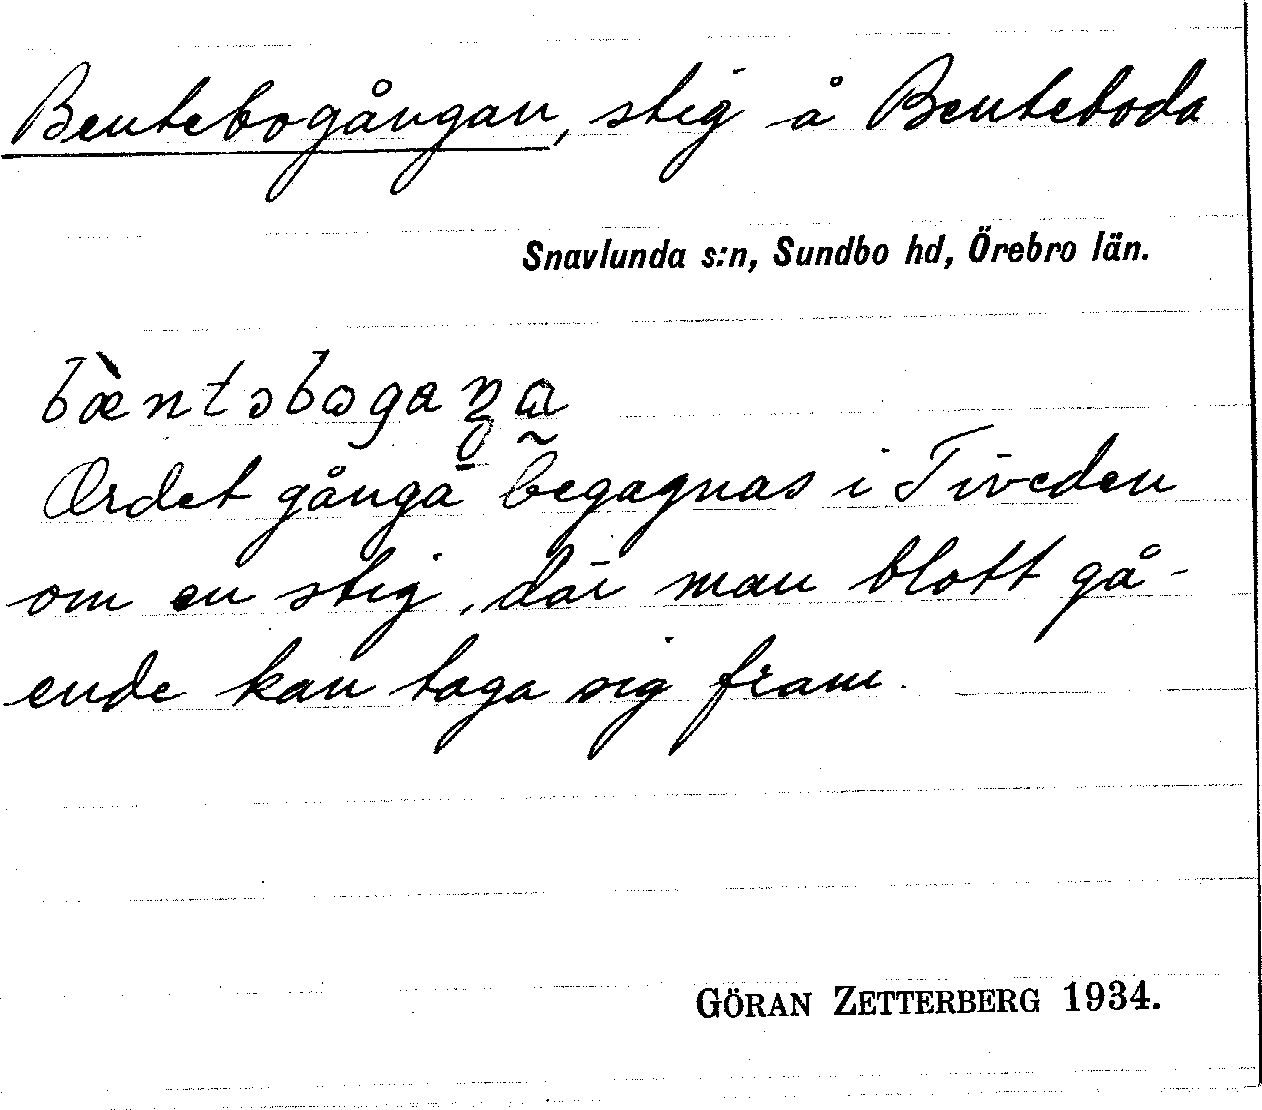 Bentebogångan, stig å Benteboda
Snavlunda s:n, Sundbo hd, Örebro län.
Ordet gånga begagnas i Tiveden
om en stig, där man blott gå-
ende kan taga sig fram.
GÖRAN ZETTERBERG 1934.